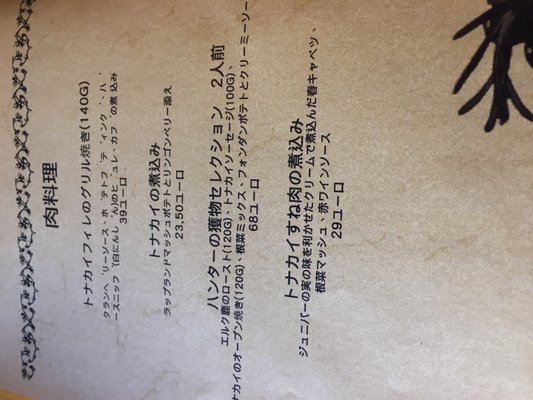 肉料理
トナカイフィレのグリル焼き(140G)
クランベリーソース、ポテトプディング、ハ、
ースニップ（白にんじん）のピュレ、カブの煮込み
39ユーロ
トナカイの煮込み
ラップランドマッシュポテトとリンゴンベリー添え
23,50ユーロ
ハンターの獲物セレクション　2人前
エルク鹿のロースト(120G)、トナカイソーセージ(100G)、
ナカイのオーブン焼き(120G)、根菜ミックス、フォンダンポテトとクリーミーソー
68ユーロ
トナカイすね肉の煮込み
ジュニパーの実の味を利かせたクリームで煮込んだ春キャベツ、
根菜マッシュ、赤ワインソース
29ユーロ